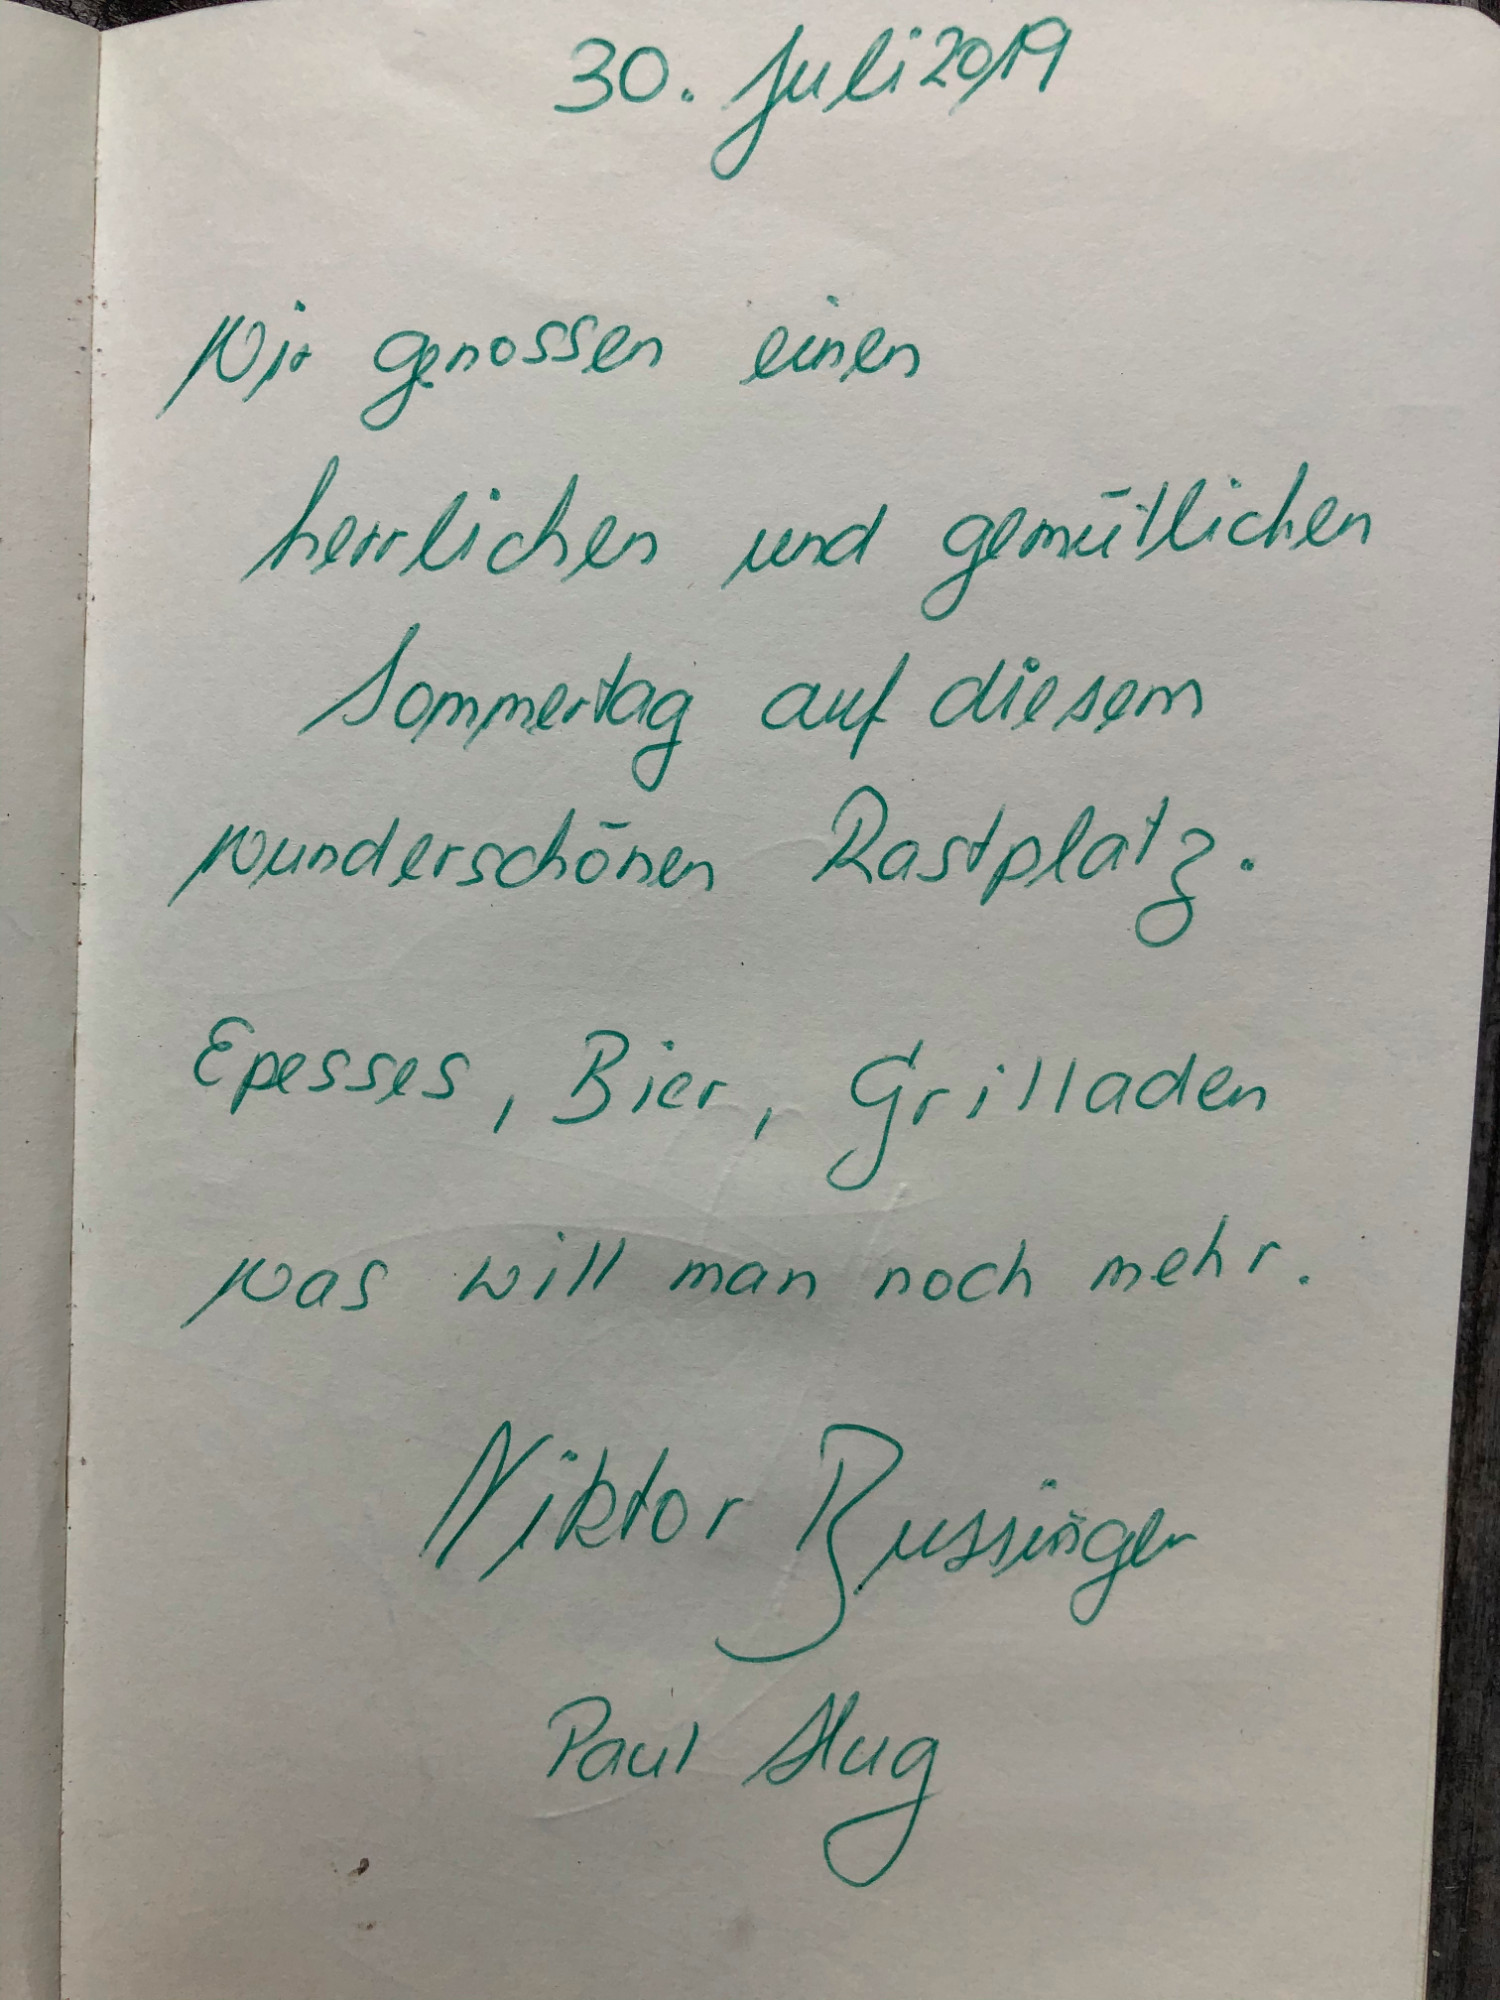 30. Juli 2019
Wir genossen einen
herrlichen und gemütlichen
Sommertag auf diesem
wunderschönen Rastplatz.
Epesses, Bier, Grilladen
was will man noch mehr.
Viktor Bussinger
Paul Hug